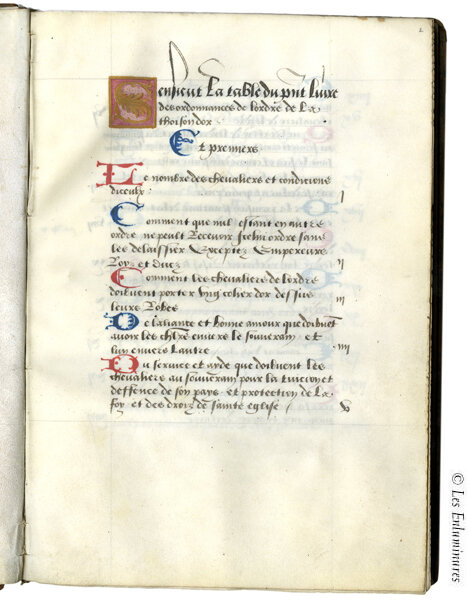 2
Sensieut La table du pnt Livre
des ordonnances de lordre de La
thoison dor
Et premiers
Le nombre des chevaliers et condicions
diceulx
I
Comment que nul estant en autre
ordre ne peult Recevoir icelui ordre sans
les delaissier Exceptez Empereurs
Roys et Ducz
II
Comment les chevaliers de lordre
doibvent porter ung colier dor dessus
leurs Robes
III
De laliance et bonne amour que doibvent
avoir les chlrs envers le souverain et
lun envers lautre
IIII
Du service et ayde que doibvent les
chevaliers au souverain pour la tuicion et
deffence de son pays et protection de La
foy et des droiz de sainte eglise
V
© Les Enluminures